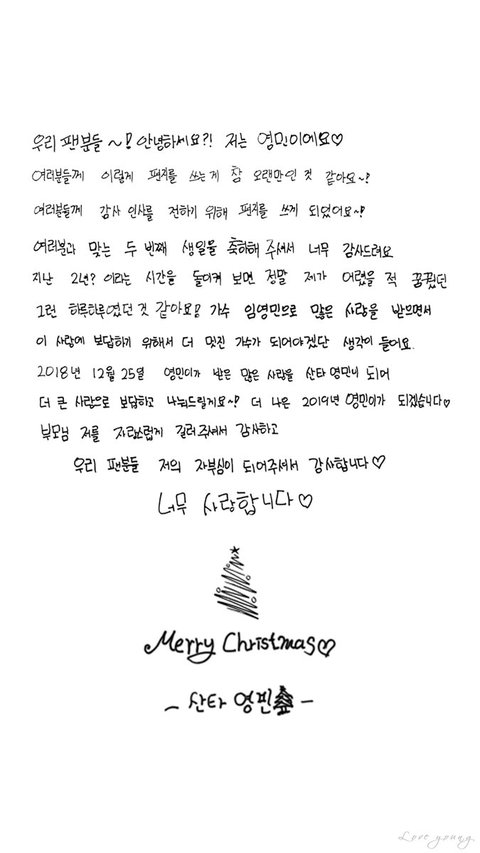 우리 팬분들 ~! 안녕하세요?! 저는 영민이에요♡
여러분들께 이렇게 편지를 쓰는게 참 오랜만인 것 같아요~!
여러분들께 감사 인사를 전하기 위해 편지를 쓰게 되었어요~!
여러분과 맞는 두 번째 생일을 축하해 주셔서 너무 감사드려요
지난 2년? 이라는 시간을 돌이켜 보면 정말 제가 어렸을 적 꿈꿨던
그런 하루하루였던 것 같아요! 가수 임영민으로 많은 사랑을 받으면서
이 사랑에 보답하기 위해서 더 멋진 가수가 되어야겠단 생각이 들어요.
2018년 12월 25일 영민이가 받은 많은 사랑을 산타 영민이 되어
더 큰 사랑으로 보답하고 나눠드릴게요~! 더 나은 2019년 영민이가 되겠습니다♡
부모님 저를 자랑스럽게 길러주셔서 감사하고
우리 팬분들 저의 자부심이 되어주셔서 감사합니다♡
너무 사랑합니다♡
Merry Christmas♡
- 산타 영민 -
Love young